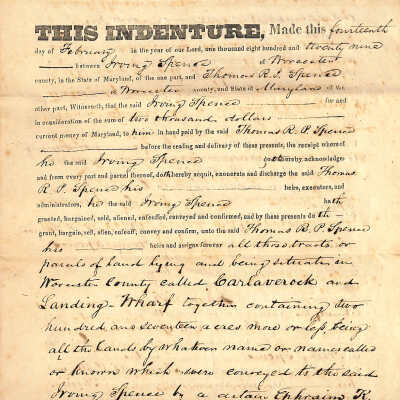 THIS INDENTURE, Made this fourteenth
day of February in the year of our Lord, one thousand eight hundred and twenty nine
between Irving Spence of Worcester
county, in the State of Maryland, of the one part, and Thomas R. P. Spence
of Worcester county, and State of Maryland of the
other part, Witnesseth, that the said Irving Spence for and
in consideration of the sum of two thousand dollars
current money of Maryland, to him in hand paid by the said Thomas R. P. Spence
before the sealing and delivery of these presents, the receipt whereof
he the said Irving Spence doth hereby acknowledge
and from every part and parcel thereof, doth hereby acquit, exonerate and discharge the said Thomas
R. P. Spence his heirs, executors, and
administrators, he the said Irving Spence hath
granted, bargained, sold, aliened, enfeoffed, conveyed and confirmed, and by these presents doth
grant, bargain, sell, alien, enfeoff, convey and confirm, unto the said Thomas R. P. Spence
his heirs and assigns forever all those tracts or
parcels of land lying and being situate in
Worcester County called Carlaverock and
Landing-Wharf together containing two
hundred and seventeen acres more or less, being
all the lands by whatever name or names called
or known which were conveyed to the said
Irving Spence by a certain Ephraim K.